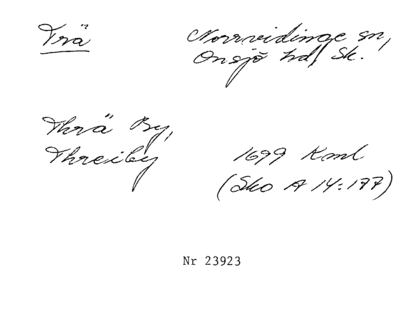 Trä
Norrvidinge sn,
Onsjö hd, Sk.
Thrä By,
Threiby
1699 Kml
(Sko A 14:177)
Nr 23923